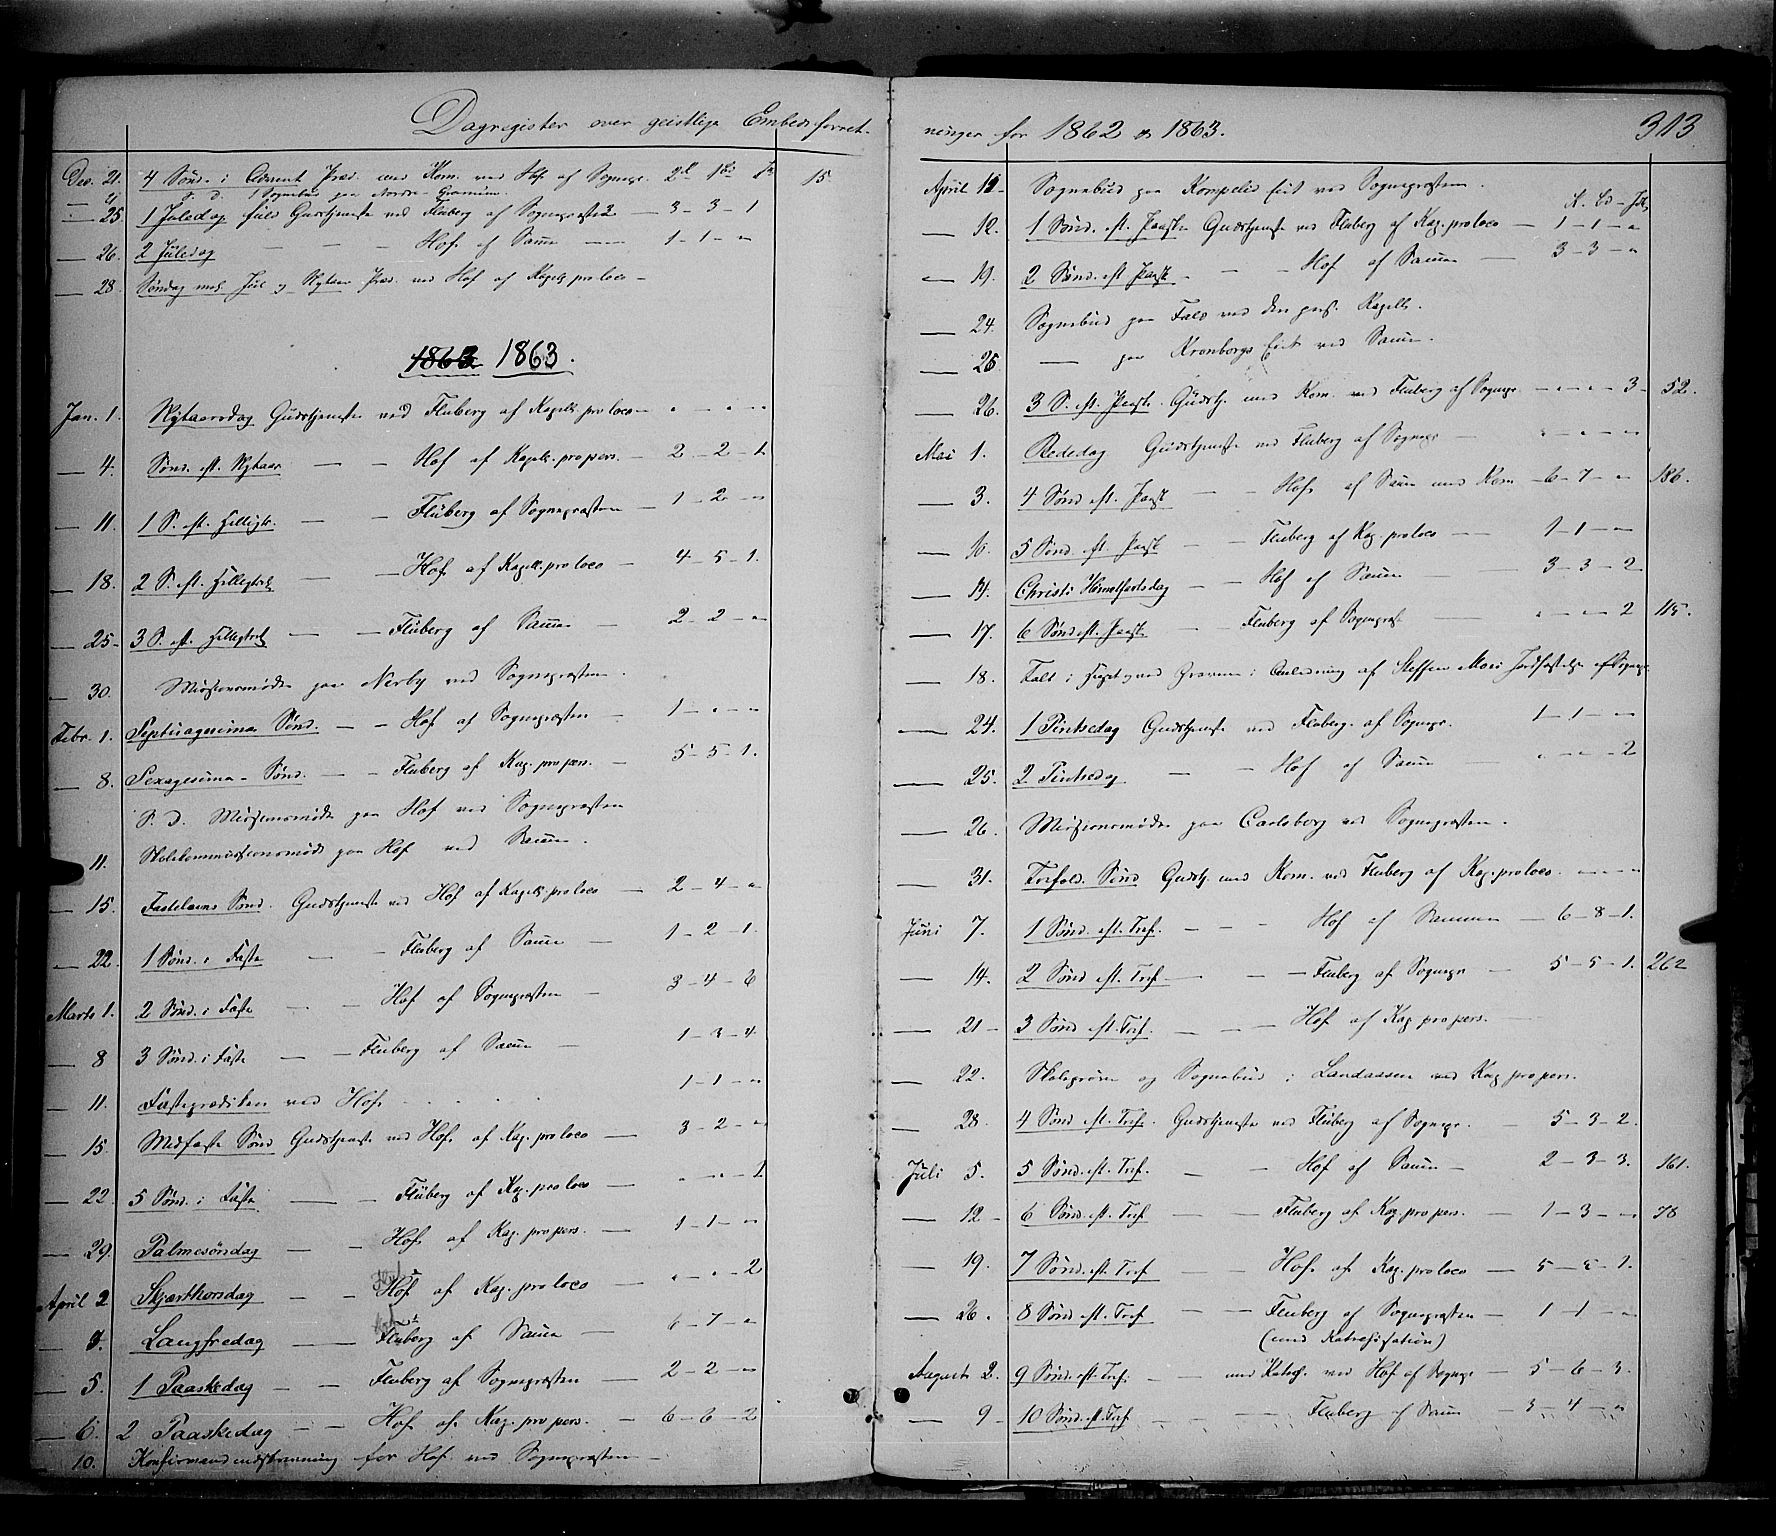 Dagregister over geistlige Embedsforret-
Dec. 21. 4 Sønd. i Advent Præd. med Kom. ved Hof af Sognepr. 15
S. D. Sognebud paa Nordre
— 25 1 Juledag fuld Gudstjeneste ved Fluberg af Sognepræsten — 3 – 3 – 1
— 26. 2 Juledag — — — Hof af Samme — 1 – 1 – „
— 28. Søndag mel. Jul og Nytaar Præd. ved Hof af Kapell. pro loco –
1862 1863.
Jan. 1. Nytaarsdag Gudstjeneste ved Fluberg af Kapell. pro loco – „ – „ – „
— 4. Sønd. eft. Nytaar — — Hof af Kapell. pro pers. – 2 – 2 – 1
— 11. 1 S. eft. Helligtr. — — Fluberg af Sognepræsten – 1 – 2 – „
— 18. 2 S. eft. Helligtrk — — Hof af Kapell. pro loco – 4 – 5 – 1.
— 25 – 3 S. eft. Helligtrk — — Fluberg af Samme – 2 – 2 – „
— 30. Missionsmøde paa Nerby ved Sognepræsten.
Febr. 1. Septuagesima Sønd. — — Hof af Sognepræsten – 1 – „ – „
— 8. Sexagesima – Sønd. — — Fluberg af Kap. pro pers. – 5 – 5 – 1.
S. D. Missionsmøde paa Hof ved Sognepræsten
11. Skolekommissionsmøde paa Hof ved Samme.
— 15. Fastelavns Sønd. Gudstjeneste ved Hof af Kapell. pro loco – 2 – 4 – „
— 22. 1 Sønd. i Faste — — Fluberg af Samme – 1 – 2 – 1.
Marts 1. 2 Sønd. i Faste — — Hof af Sognepræsten – 3 – 4 – 6
— 8 3 Sønd. i Faste — — Fluberg af Samme – 1 – 3 – 4
— 11. Fasteprædiken ved Hof. . . . . . 1 – 1 – „
— 15. Midfaste Sønd Gudstjeneste ved Hof. af Kap. pro loco – 3 – 2 – „
— 22. 5 Sønd. i Faste — — Fluberg af Kap. pro loco – „ – „ – 1
— 29. Palmesøndag — — Hof. af Kap. pro pers. – 1 – 1 – „
April 2 Skjærthorsdag — — Hof af Kap. pro loco – „ – „ – 2
— 3. Langfredag — — Fluberg af Samme – 6 – 7 – „
— 5. 1 Paaskedag — — Fluberg af Sognepræsten – 2 – 2 – „
— 6. 2 Paaskedag — — Hof. af Kap. pro pers. – 6 – 6 – 2
10. Konfirmandindskrivning for Hof ved Sognepræsten –
ninger for 1862 og 1863. 313
April 12 – Sognebud paa Kompelis Eie ved Sognepræsten.
— 12. 1 Sønd. eft. Paaske Gudstjeneste ved Fluberg af Kap. pro loco – 1 – 1 – „
— 19. 2 Sønd. eft Paaske – — — Hof af Samme – 3 – 3 – „
— 24. Sognebud paa Fals ved den pers. Kapell.
— 25 — paa Kronborgs Eie ved Samme.
— 26. 3 S. eft. Paaske. Gudstj. med Kom. ved Fluberg af Sognepr – „ – „ – 3 – 52.
Mai 1. Bededag Gudstjeneste ved Fluberg af Sognepr – „ – „ – „
— 3. 4 Sønd eft. Paaske — — Hof. af Samme med Kom – 6 – 7 – „ 186.
— 10. 5 Sønd. eft. Paaske — — Fluberg af Kap pro loco – 1 – 1 – „
— 14. Christi Himmelfartsdag — — Hof af Samme — 3 – 3 – 2
— 17. 6 Sønd. eft. Paaske — Fluberg af Sognepræst — „ – „ – 2 115.
— 18. Tale i Huset og ved Graven i Anledning af Steffen Moes Jordfæstelse af Sognepr.
— 24. 1 Pintsedag Gudstjeneste ved Fluberg. af Sognepr. 1 – 1 – „
— 25. 2 Pintsedag — — Hof af Samme — „ – „ – 2
— 26. Missionsmøde paa Carlsberg ved Sognepræsten.
— 31. Trefold. Sønd Gudstj med Kom. ved Fluberg af Kap. pro loco. – „ – „
Juni 7. 1 Sønd. eft. Tref. — — — Hof af Samme – 6 – 8 – 1.
— 14. 2 Sønd eft. Tref. — — — Fluberg af Sognepr – 5 – 5 – 1. 262
— 21 – 3 Sønd eft. Tref. — — — Hof af Kap pro pers. —
— 22. Skoleprøve og Sognebud i Landaasen ved Kap pro pers.
— 28. 4 Sønd eft. Tref. Gudstjeneste ved Fluberg af Sognepr. – 5 – 3 – 2.
Juli 5. 5 Sønd. eft. Tref. — — Hof af Samme – 2 – 3 – 3. 161.
— 12 – 6 Sønd. eft. Tref. — — Fluberg af Kap pro pers. – 1 – 3 – „ 78
— 19. 7 Sønd. eft. Tref — — Hof. af Kap. pro loco – 5 – 6 – 1.
— 26. 8 Sønd eft. Tref — — Fluberg af Sognepræsten – 1 – 1 – „
(med Katechisation)
August 2. 9 Sønd. eft. Tref. — — med Katech. ved Hof af Sognepr – 5 – 6 – 3.
— 9 – 10 Sønd. eft. Tref — — — Fluberg af Samme – 3 – 4 – „